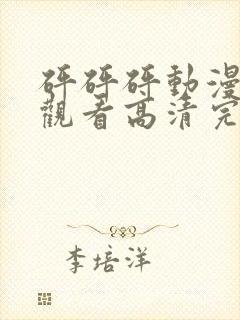 砰砰砰動漫
觀看高清完
李培洋